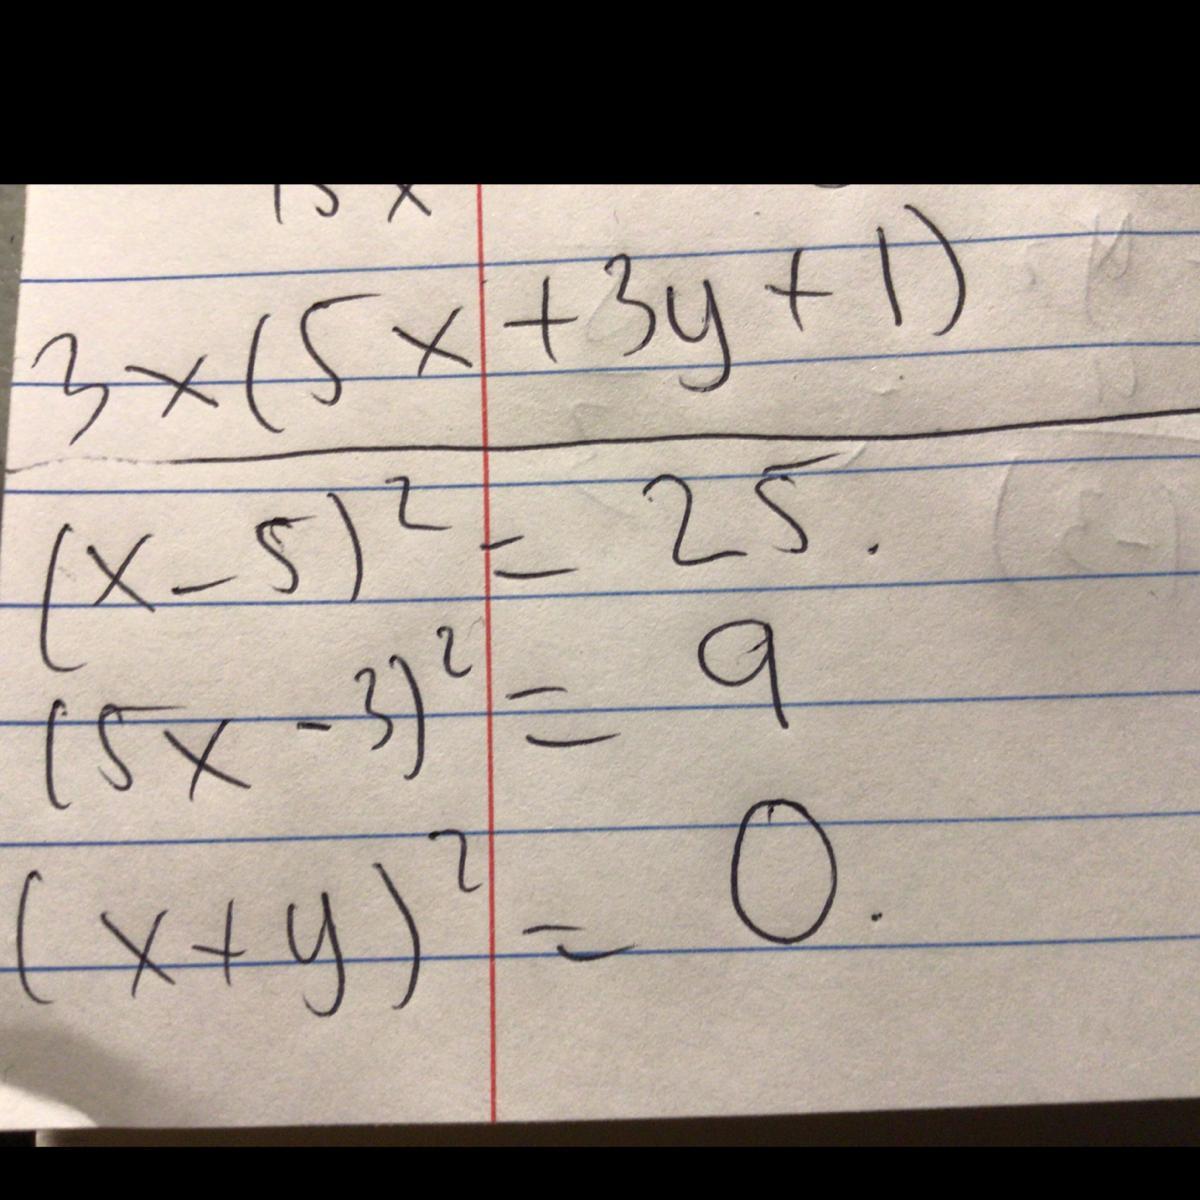 15x
3x(5x+3y+1)
(x-5)² = 25.
(5x-3)² = 9
(x+y)² = 0.